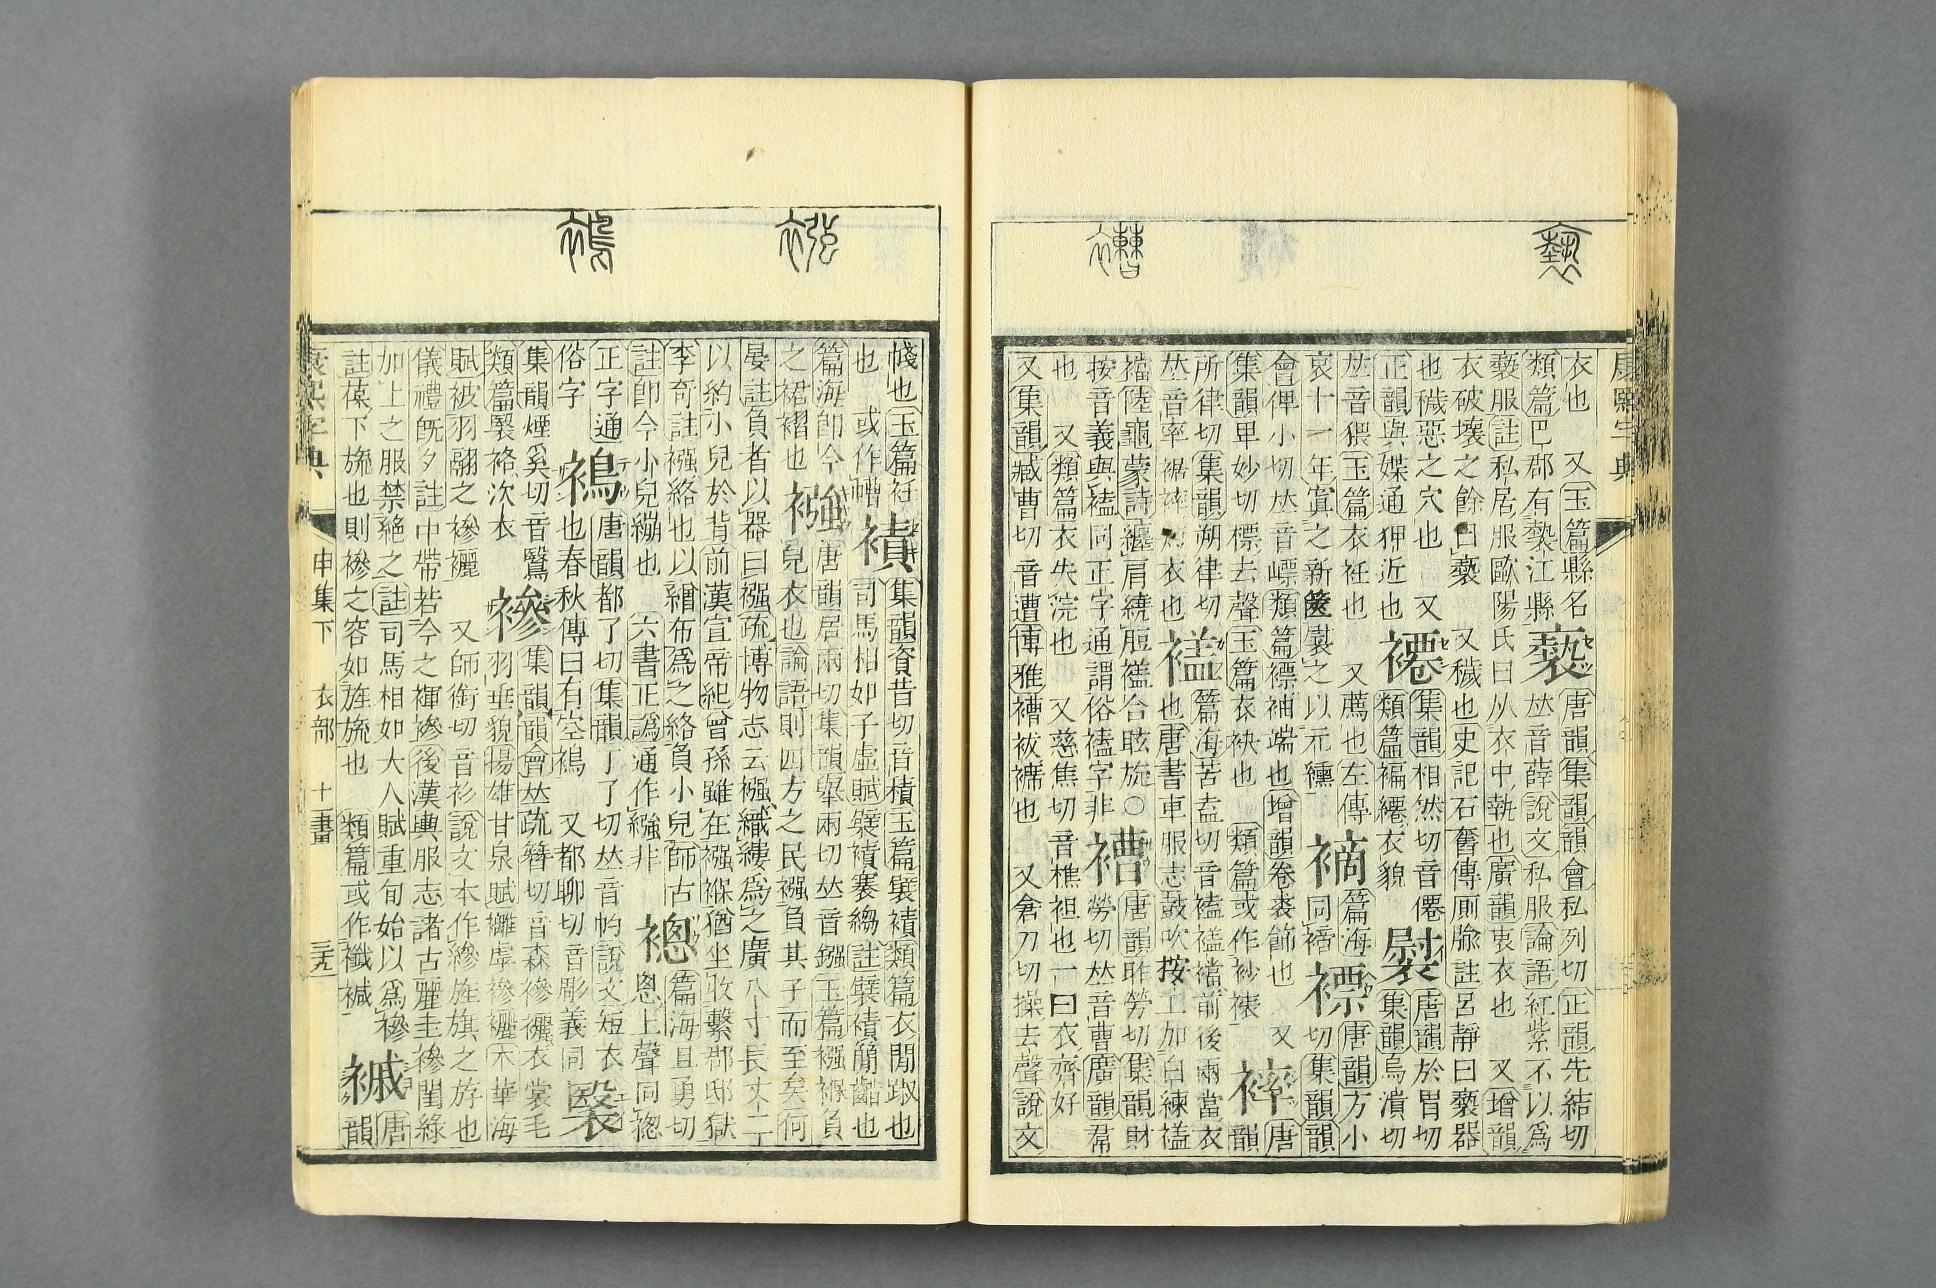 康熙字典
褻
衣也 又玉篇縣名褻唐韻集韻韻會私列切正韻先結切
類篇巴郡有褻江縣𠀤音薛說文私服論語紅紫不以爲
褻服註私居服歐陽氏曰从衣中執也廣韻衷衣也 又增韻
衣破壞之餘曰褻 又穢也史記石奮傳厠牏註呂靜曰褻器
也穢惡之穴也 又褼集韻相然切音僊褽唐韻於胃切
正韻與媟通狎近也類篇褊褼衣貌集韻烏潰切
𠀤音猥玉篇衣衽也 又薦也左傳篇海褾唐韻方小
哀十一年寘之新篋褽之以元纁同褅切集韻韻
會俾小切𠀤音㠒類篇褾袖端也增韻卷裘飾也 又唐
集韻卑妙切標去聲玉篇衣袂也 類篇或作裱韻
所律切集韻朔律切篇海苦盍切音榼襠前後兩當衣
𠀤音率裾也唐書車服志鼓吹按工加白練
襠陸龜蒙詩纏肩繞脰合眩旋○唐韻昨勞切集韻財
按音義與同正字通謂俗字非褿勞切𠀤音曹廣韻帬
也 又類篇衣失浣也 又慈焦切音樵袒也一曰衣齊好
又集韻臧曹切音遭博雅褿袚䙏也 又倉刀切操去聲說文
帴也玉篇衽襀集韻資昔切音積玉篇襞襀類篇衣間蹙也
也 或作㡟司馬相如子虛賦襞襀褰縐註襞襀簡齰也
篇海卽今襁唐韻居兩切集韻舉兩切𠀤音鏹玉篇襁褓負
之裙褶也兒衣也論語則四方之民襁負其子而至矣何
晏註負者以器曰襁疏博物志云襁織縷爲之廣八寸長丈二
以約小兒於背前漢宣帝紀曾孫雖在襁褓猶坐收繫郡邸獄
李奇註襁絡也以繒布爲之絡負小兒師古褪篇海且勇切
註卽今小兒繃也 六書正譌通作繈非上聲同
正字通褭唐韻都了切集韻丁了切𠀤音鳥說文短衣
俗字也春秋傳曰有空褭 又都聊切音彫義同
集韻煙奚切音鷖襂集韻韻會𠀤疏簪切音森襂襹衣裳毛
類篇袼次衣羽垂貌揚雄甘泉賦襂襹木華海
賦被羽翮之襂襹 又師銜切音衫說文本作縿旌旗之斿也
儀禮旣夕註中帶若今之褌襂後漢輿服志諸古麗圭襂閨緣
加上之服禁絕之註司馬相如大人賦垂旬始以爲襂唐
註葆下旒也則襂之容如旌旒也 類篇或作襳韻
康熙字典 申集下 衣部 十一畫 三九